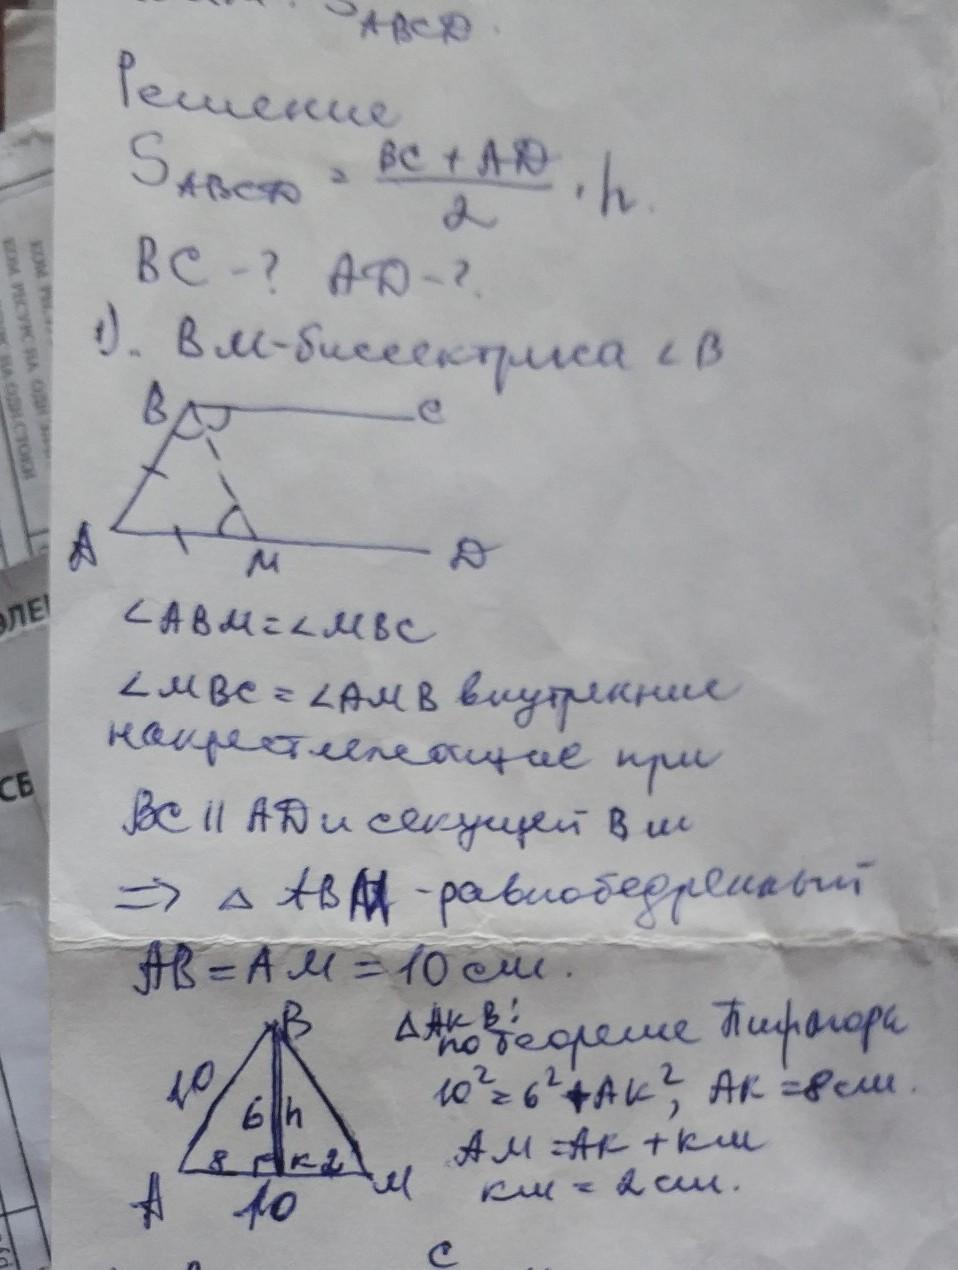 S ABCD.
Решение
S ABCD = (BC + AD)/2 · h.
BC - ? AD - ?.
1). BM - биссектриса ∠B
B C
A M D
∠ABM = ∠MBC
∠MBC = ∠AMB внутренние
накрестлежащие при
BC || AD и секущей BM
=> △ ABM - равнобедренный
AB = AM = 10 см.
B
10 6 h
8 K 2
A 10 M
△AKB:
по теореме Пифагора
10² = 6² + AK², AK = 8 см.
AM = AK + KM
KM = 2 см.
C